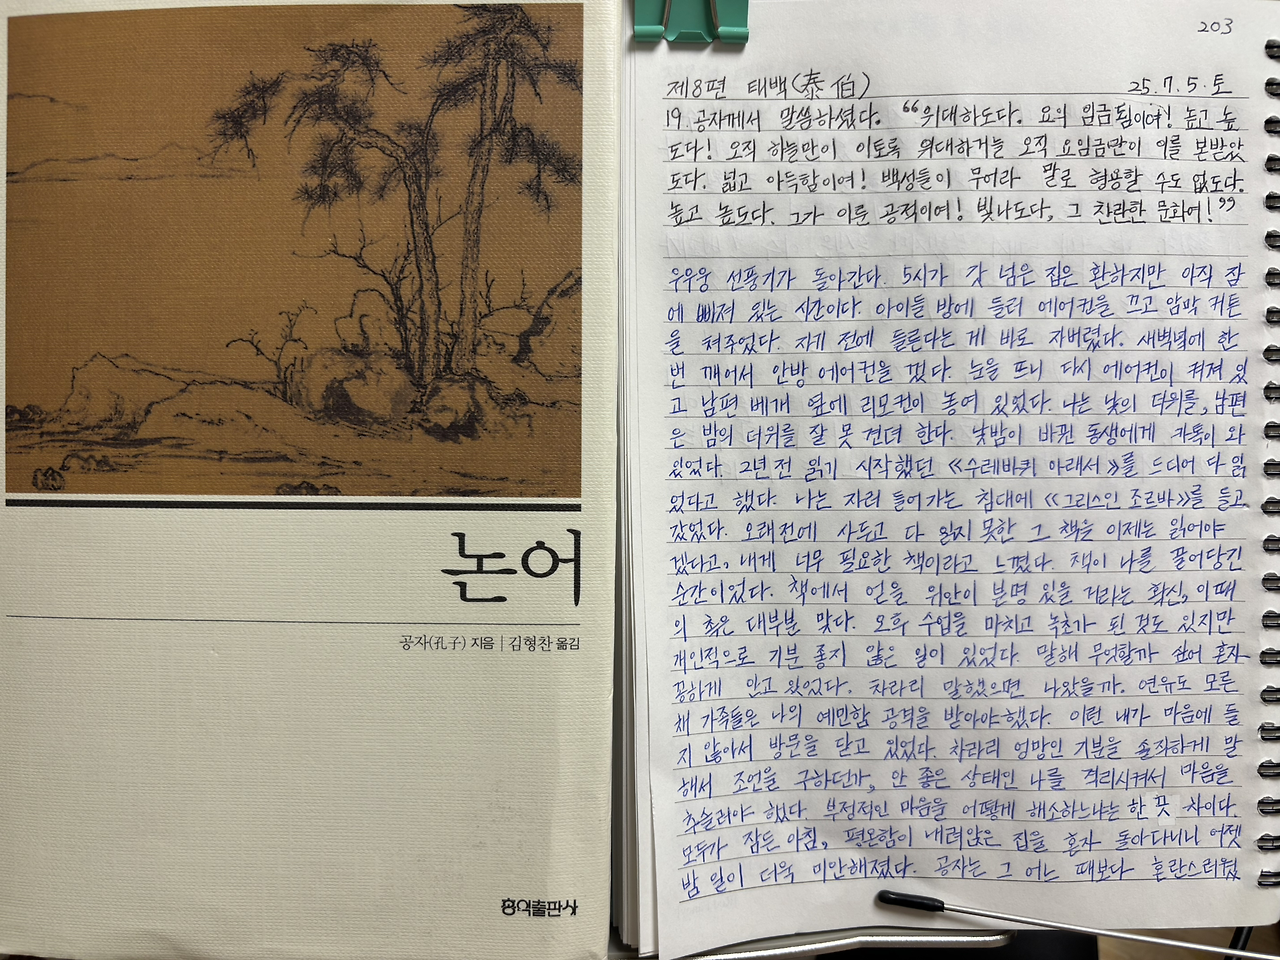 논어
공자(孔子) 지음 | 김형찬 옮김
홍익출판사
203
제8편 태백(泰伯) 25.7.5.토
19. 공자께서 말씀하셨다. "위대하도다. 요의 임금됨이여! 높고 높
도다! 오직 하늘만이 이토록 위대하거늘 오직 요임금만이 이를 본받았
도다. 넓고 아득함이여! 백성들이 무어라 말로 형용할 수도 없도다.
높고 높도다. 그가 이룬 공적이여! 빛나도다, 그 찬란한 문화여!"
우우웅 선풍기가 돌아간다. 5시가 갓 넘은 집은 환하지만 아직 잠
에 빠져 있는 시간이다. 아이들 방에 들러 에어컨을 끄고 암막 커튼
을 쳐주었다. 자기 전에 들른다는 게 바로 자버렸다. 새벽녘에 한
번 깨어서 안방 에어컨을 껐다. 눈을 뜨니 다시 에어컨이 켜져 있
고 남편 베개 옆에 리모컨이 놓여 있었다. 나는 낮의 더위를, 남편
은 밤의 더위를 잘 못 견뎌 한다. 낮밤이 바뀐 동생에게 카톡이 와
있었다. 2년 전 읽기 시작했던 《수레바퀴 아래서》를 드디어 다 읽
었다고 했다. 나는 자러 들어가는 침대에 《그리스인 조르바》를 들고
갔었다. 오래전에 사두고 다 읽지 못한 그 책을 이제는 읽어야
겠다고, 내게 너무 필요한 책이라고 느꼈다. 책이 나를 끌어당긴
순간이었다. 책에서 얻을 위안이 분명 있을 거라는 확신, 이때
의 촉은 대부분 맞다. 오후 수업을 마치고 녹초가 된 것도 있지만
개인적으로 기분 좋지 않은 일이 있었다. 말해 무엇할까 싶어 혼자
꽁하게 안고 있었다. 차라리 말했으면 나았을까. 연유도 모른
채 가족들은 나의 예민함 공격을 받아야했다. 이런 내가 마음에 들
지 않아서 방문을 닫고 있었다. 차라리 엉망인 기분을 솔직하게 말
해서 조언을 구하던가, 안 좋은 상태인 나를 격리시켜서 마음을
추슬러야 했다. 부정적인 마음을 어떻게 해소하느냐는 한 끗 차이다.
모두가 잠든 아침, 평온함이 내려앉은 집을 혼자 돌아다니니 어젯
밤 일이 더욱 미안해졌다. 공자는 그 어느 때보다 혼란스러웠